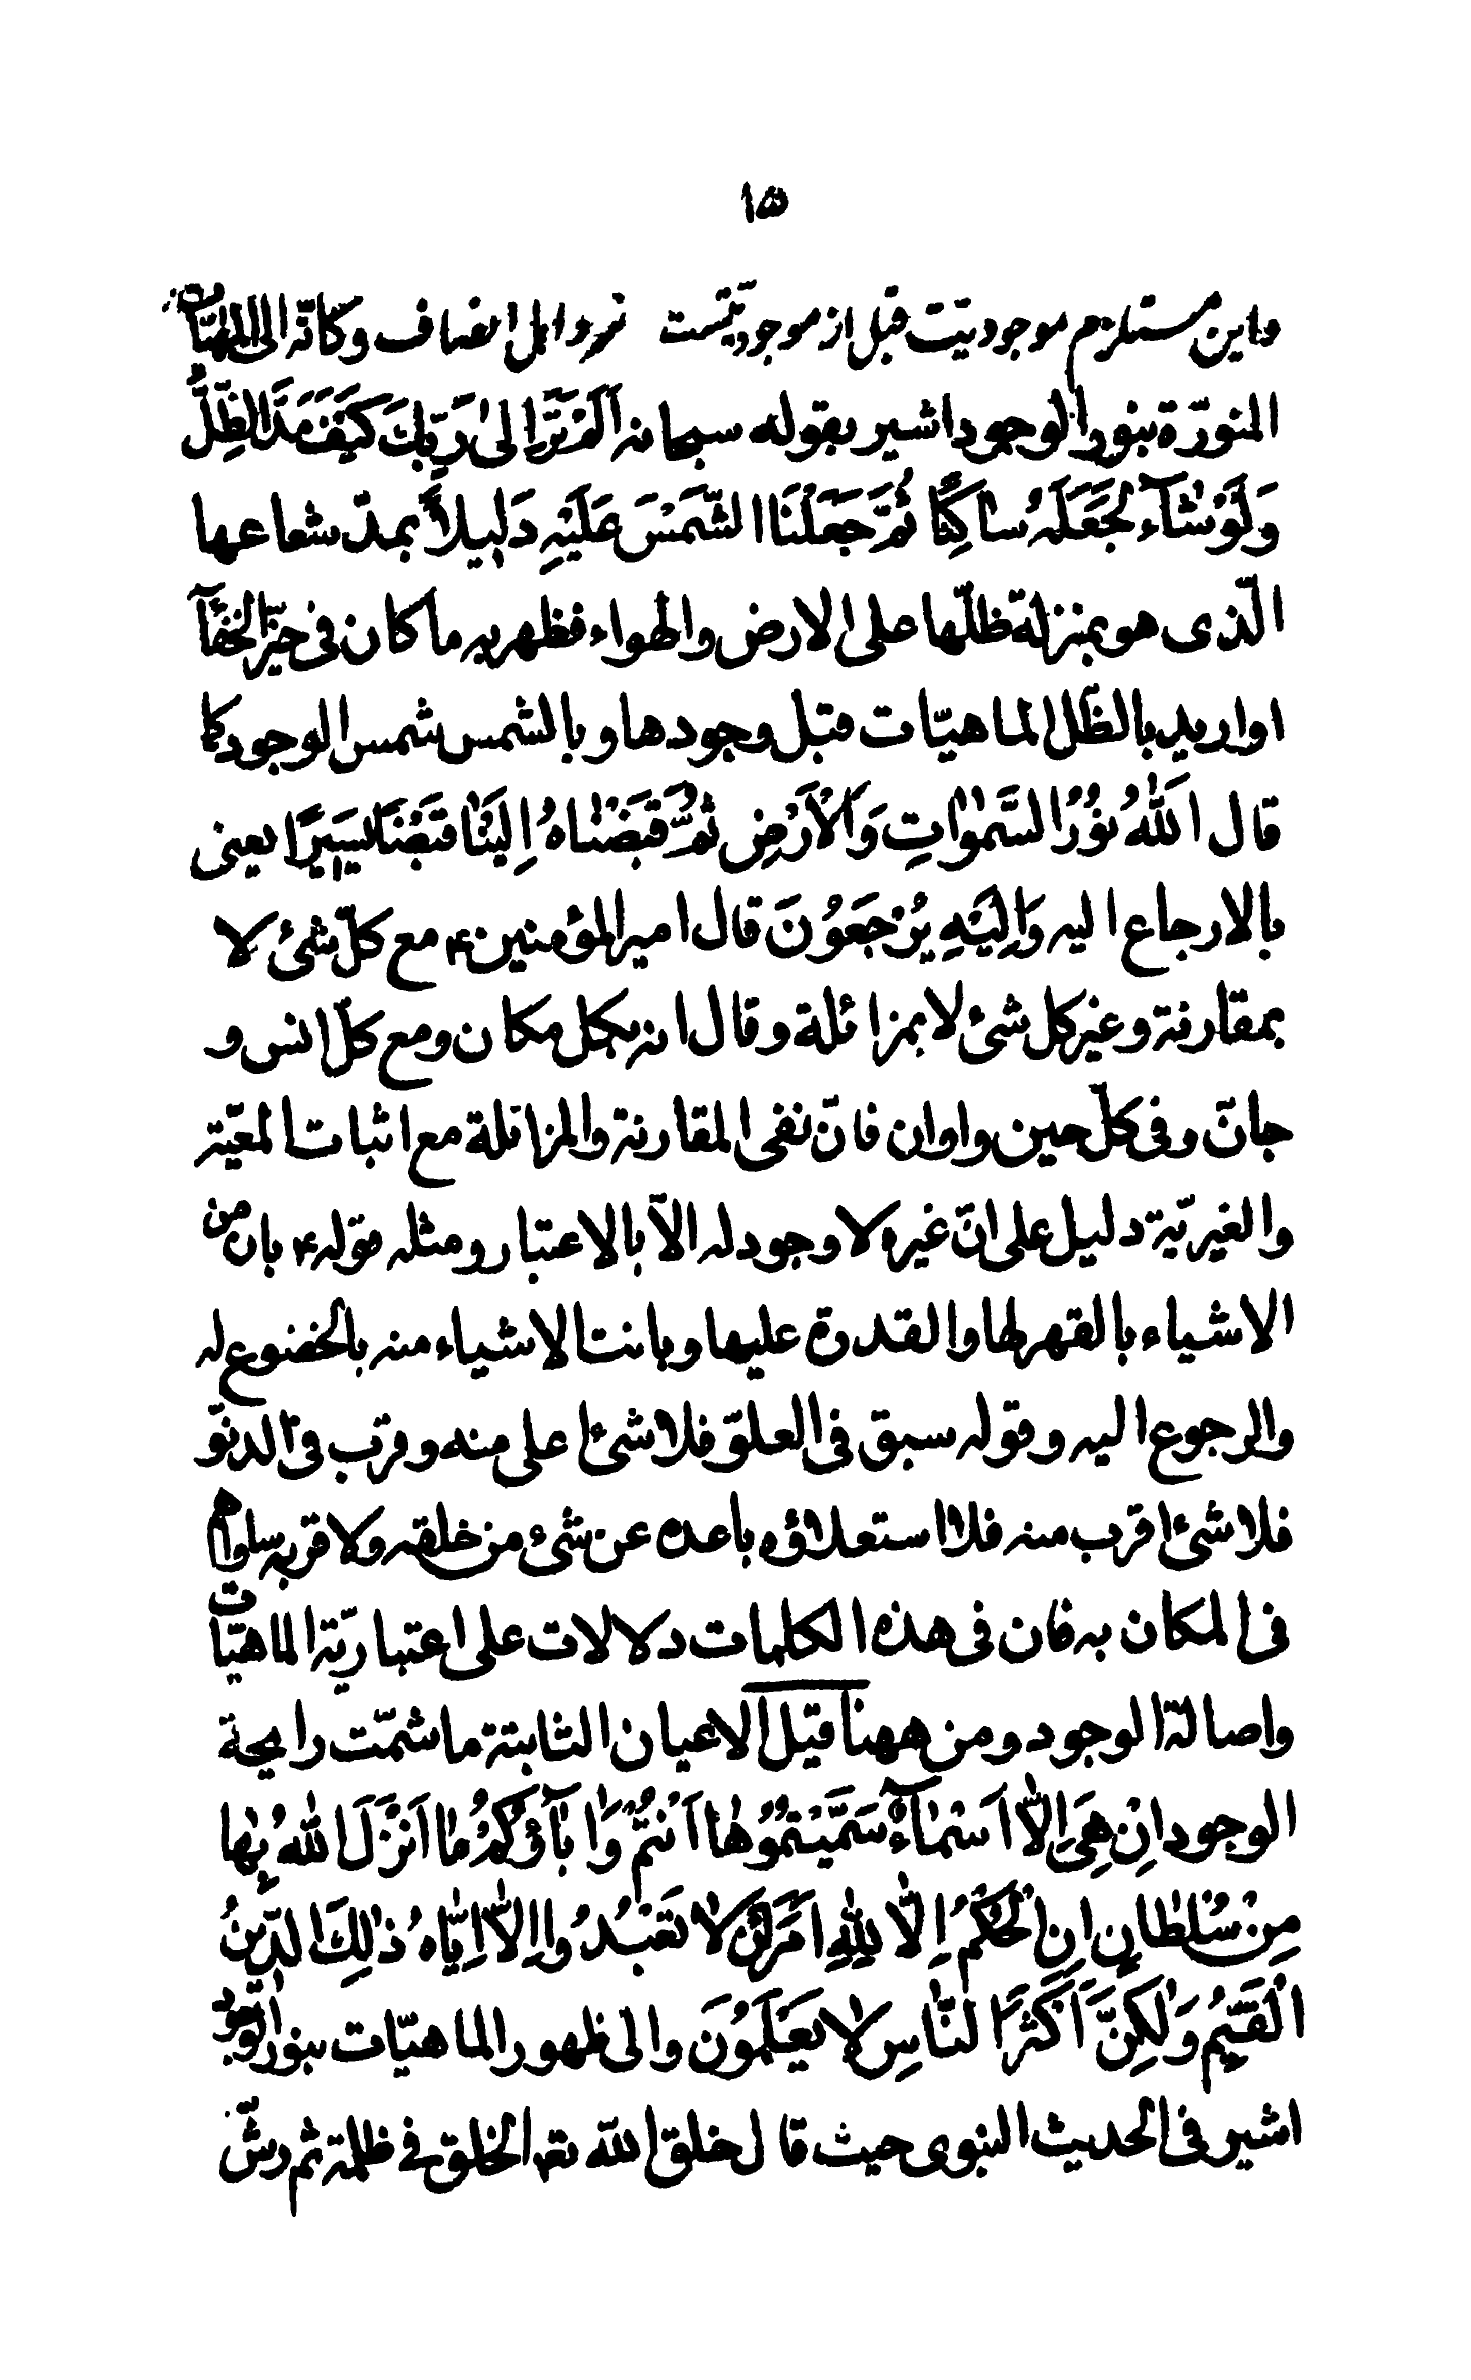 ١٥
و این مستلزم موجودیّت قبل از موجودیّتست نزد اهل انصاف وكانّه الى الماهيّات
المنوّرة بنور الوجود اشير بقوله سبحانه اَلَمْ تَرَ اِلىٰ رَبِّكَ كَيْفَ مَدَّ الظِّلَّ
وَلَوْ شٰآءَ لَجَعَلَهُ سٰاكِنًا ثُمَّ جَعَلْنَا الشَّمْسَ عَلَيْهِ دَلِيلاً بمدّ شعاعها
الّذى هو بمنزلة ظلّها على الارض والهواء فظهر به ما كان فى حيّز الخفآء
او اريد بالظلّ الماهيّات قبل وجودها و بالشمس شمس الوجود كما
قال اَللّٰهُ نُوْرُ السَّمٰوٰاتِ وَالْاَرْضِ ثُمَّ قَبَضْنٰاهُ اِلَيْنٰا قَبْضًا يَسِيْرًا يعنى
بالارجاع اليه وَاِلَيْهِ يُرْجَعُوْنَ قال امير المؤمنين ۴ مع كلّ شئ لا
بمقارنة و غير كل شئ لا بمزائلة و قال انه بكل مكان و مع كلّ انس و
جانّ و فى كلّ حين و اوان فانّ نفى المقارنة والمزائلة مع اثبات المعيّة
والغيريّة دليل على انّ غيره لا وجود له الاّ بالاعتبار و مثله قوله ۴ بان من
الاشياء بالقهر لها والقدرة عليها و بانت الاشياء منه بالخضوع له
والرجوع اليه و قوله سبق فى العلوّ فلا شئ اعلى منه و قرب فى الدنوّ
فلا شئ اقرب منه فلا استعلاؤه باعده عن شئ من خلقه ولا قربه ساواهم
فى المكان به فان فى هذه الكلمات دلالات على اعتباريّة الماهيّات
واصالة الوجود و من ههنا قيل الاعيان الثابتة ما شمّت رايحة
الوجود اِنْ هِىَ اِلّٰا اَسْمٰآءٌ سَمَّيْتُمُوْهٰا اَنْتُمْ وَاٰبٰآؤُكُمْ مٰا اَنْزَلَ اللّٰهُ بِهٰا
مِنْ سُلْطٰانٍ اِنِ الْحُكْمُ اِلّٰا لِلّٰهِ اَمَرَ اَنْ لٰا تَعْبُدُوا اِلّٰا اِيّٰاهُ ذٰلِكَ الدِّيْنُ
الْقَيِّمُ وَلٰكِنَّ اَكْثَرَ النّٰاسِ لٰا يَعْلَمُوْنَ والى ظهور الماهيّات بنور الوجود
اشير فى الحديث النبوى حيث قال خلق اللّه تعہ الخلق فى ظلمة ثم رشّ